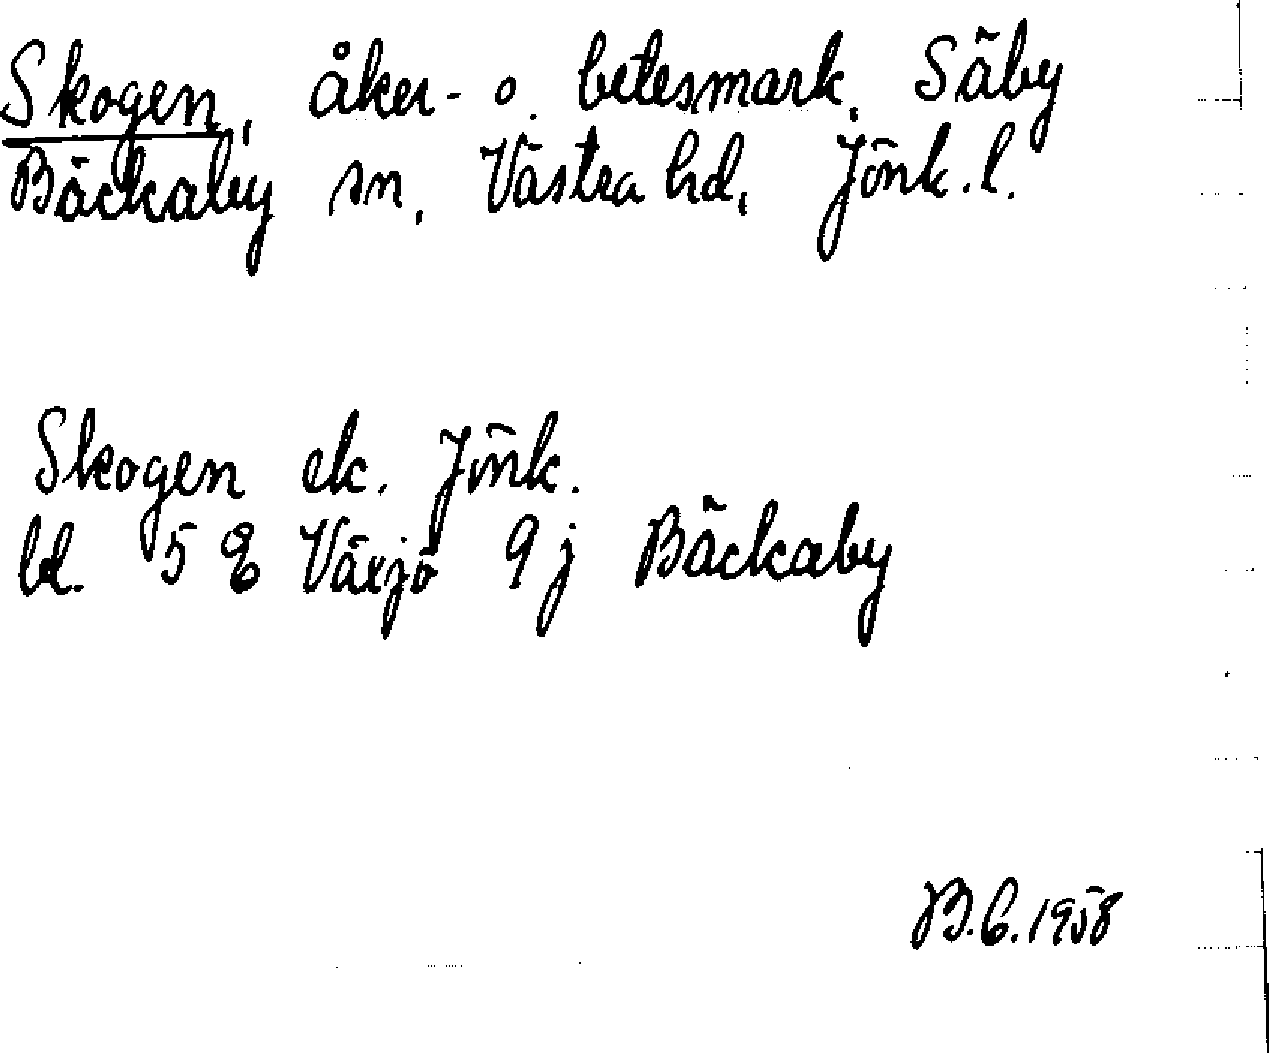 Skogen, åker- o. betesmark, Säby
Bäckaby sn, Västra hd, Jönk. l.
Skogen ek. Jönk.
bl. 5 E Växjö 9 j Bäckaby
B.C. 1958